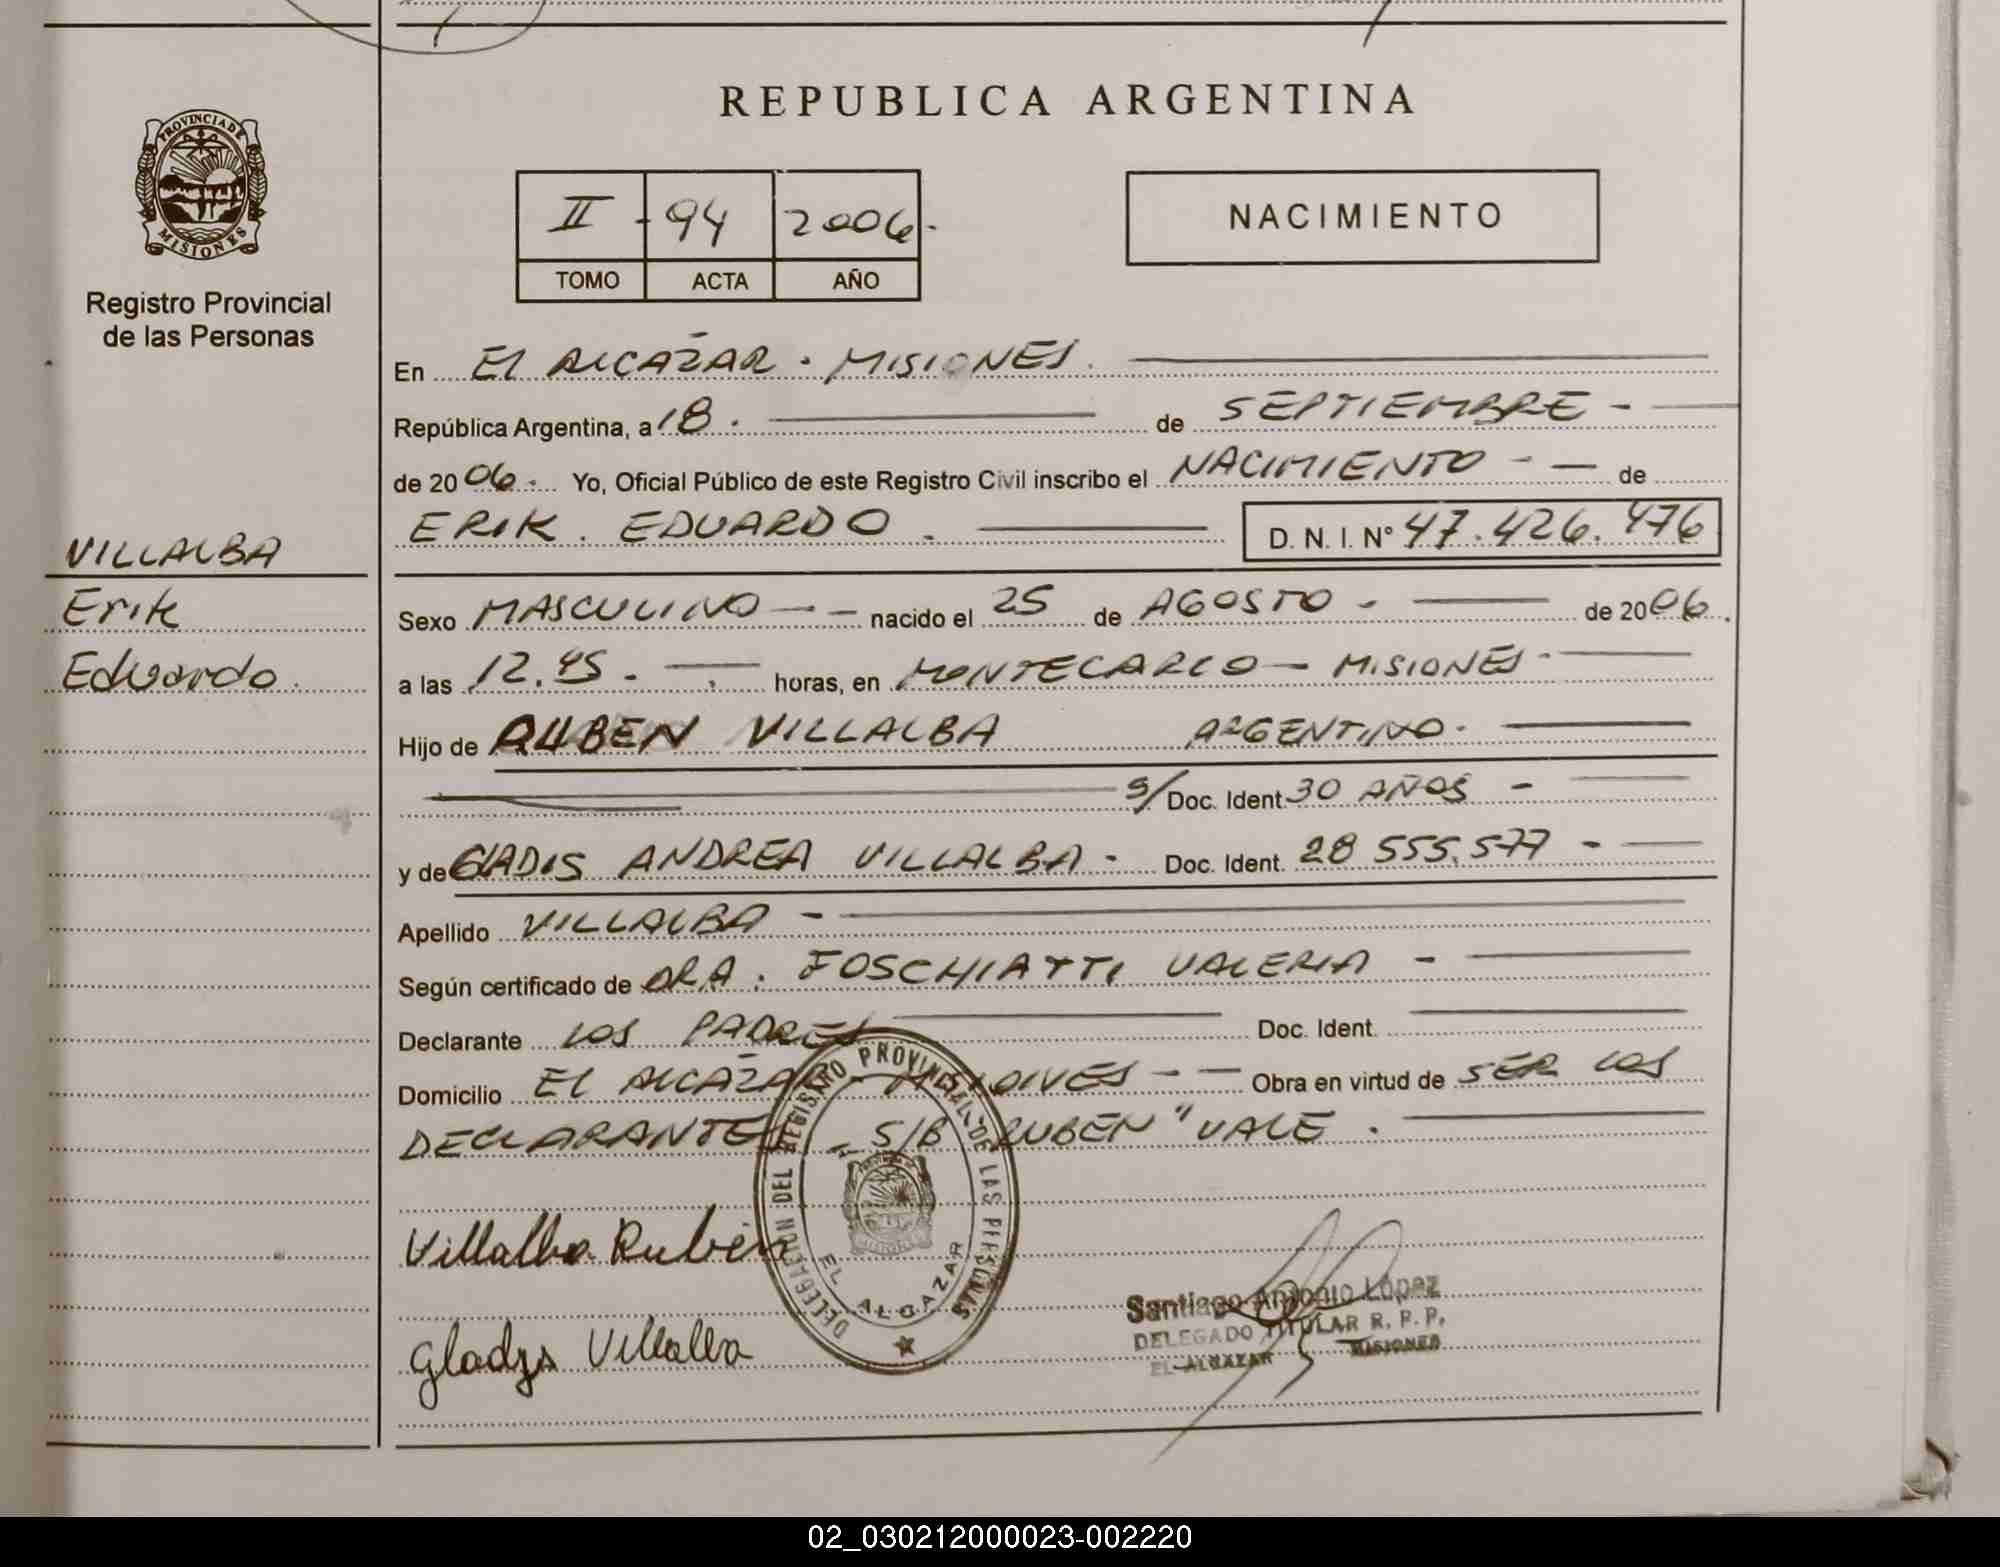 REPUBLICA ARGENTINA
PROVINCIA DE
MISIONES
Registro Provincial
de las Personas
II - 94 2006.
TOMO ACTA AÑO
NACIMIENTO
En EL ALCÁZAR . MISIONES.
República Argentina, a 18 . de SEPTIEMBRE -
de 20 06 . Yo, Oficial Público de este Registro Civil inscribo el NACIMIENTO - - de
ERIK . EDUARDO . D. N. I. Nº 47.426.476
VILLALBA
Erik
Eduardo.
Sexo MASCULINO - - nacido el 25 de AGOSTO - de 2006.
a las 12.45. - horas, en MONTECARLO - MISIONES -
Hijo de RUBEN VILLALBA ARGENTINO. -
s/ Doc. Ident 30 AÑOS -
y de GLADIS ANDREA VILLALBA - Doc. Ident. 28 555.577 -
Apellido VILLALBA -
Según certificado de DRA. FOSCHIATTI VALERIA -
Declarante LOS PADRES Doc. Ident.
Domicilio EL ALCÁZAR - MISIONES - - Obra en virtud de SER LOS
DECLARANTES S/B "RUBEN" VALE .
DELEGACION DEL REGISTRO PROVINCIAL DE LAS PERSONAS
EL ALCAZAR
Villalba Rubén
Gladys Villalba
Santiago Antonio López
DELEGADO TITULAR R. P. P.
EL ALCAZAR MISIONES
02_030212000023-002220